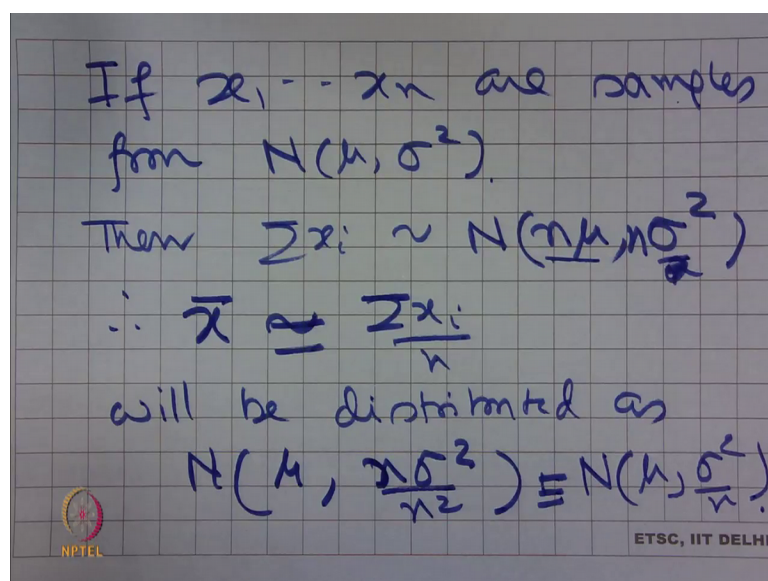 If x₁ -- xₙ are samples
from N(μ, σ²).
Then Σxᵢ ~ N(nμ, nσ²)
∴ x̄ = Σxᵢ/n
will be distributed as
N(μ, nσ²/n²) ≡ N(μ, σ²/n).
NPTEL
ETSC, IIT DELHI